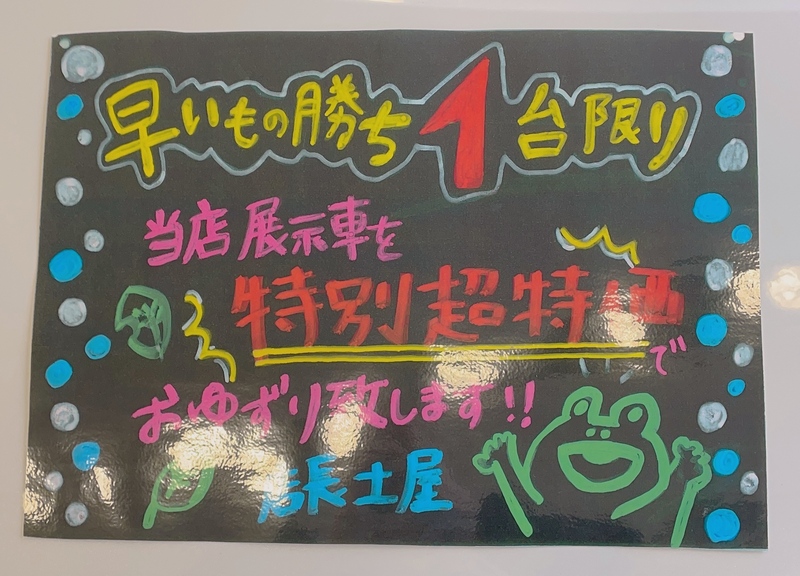 早いもの勝ち1台限り
当店展示車を
特別超特価
で
おゆずり致します!!
店長土屋